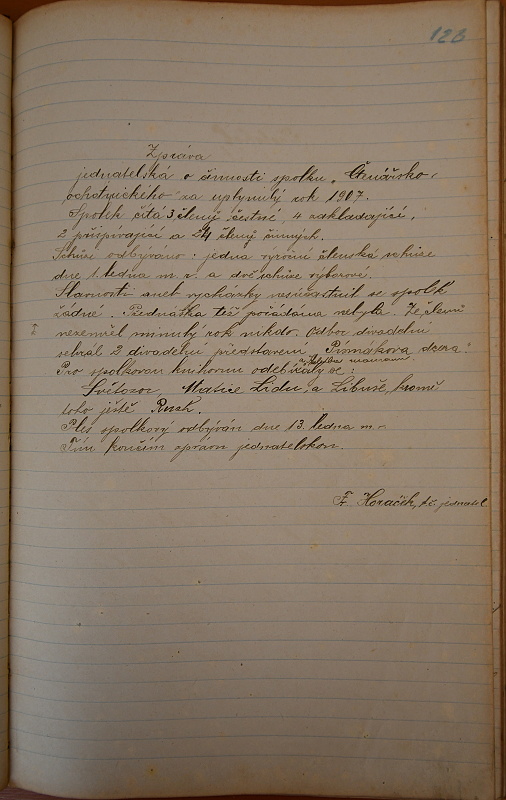 123
Zpráva
jednatelská o činnosti spolku „Čtenářsko-
ochotnického" za uplynulý rok 1907.
Spolek čítá 3 členy čestné, 4 zakladající,
2 přispívající a 24 členů činných.
Schůzí odbýváno: jedna výroční členská schůze
dne 1. ledna m. r. a dvě schůze výborové.
Slavnosti aneb vycházky nesúčastnil se spolek
žádné. Přednáška též pořádána nebyla. Ze členů
nezemřel minulý rok nikdo. Odbor divadelní
sehrál 2 divadelní představení „Pasekářova dcera"
a „Kletba
Pro spolkovou knihovnu odebíraly se:
Světozor, Matice Lidu, a Libuše, kromě
toho ještě Ruch.
Ples spolkový odbýván dne 13. ledna m. r.
Tím končím zprávu jednatelskou.
F. Horáček, t. č. jednatel.